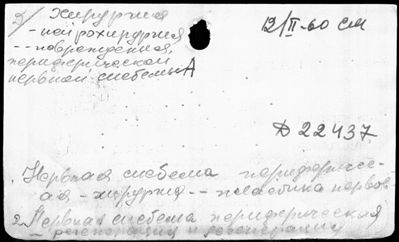 9/ хирургия
- нейрохирургия
-- повреждения
периферической
нервной системы А
12/II-60 см
Д 22437
1. Нервная система периферичес-
ая - хирургия -- пластика нервов
2. Нервная система периферическая
регенерация и дегенерация